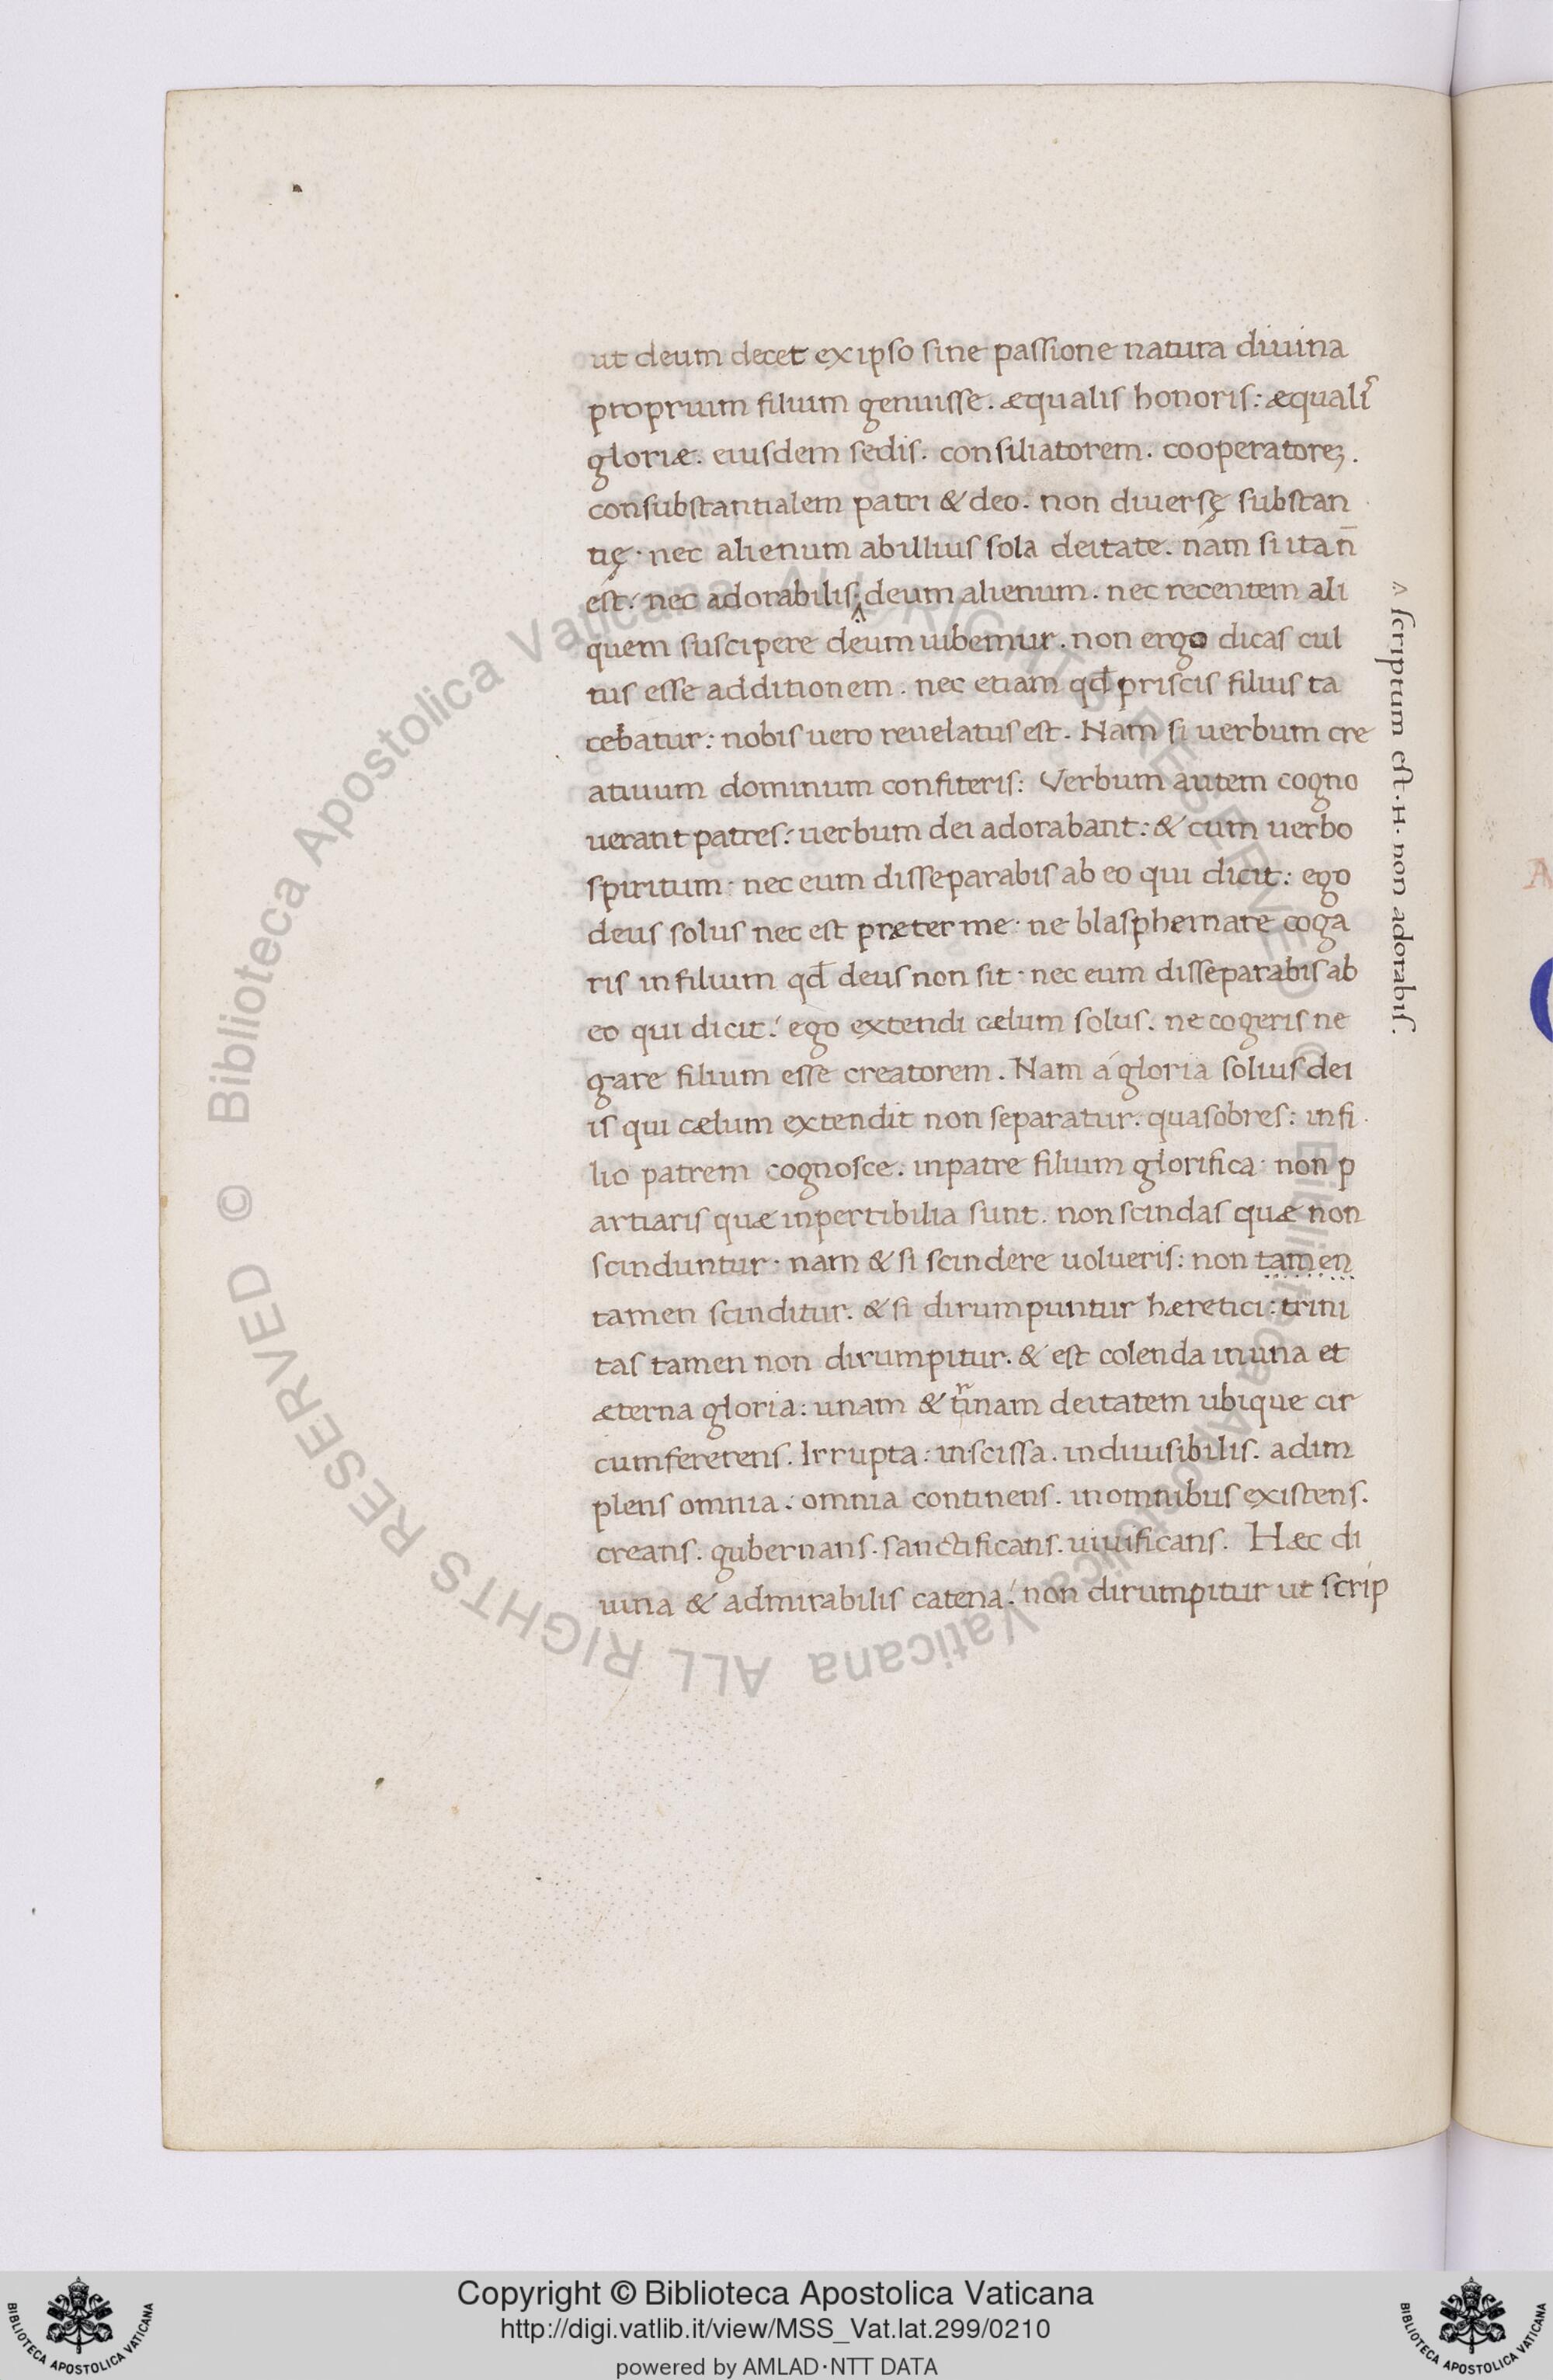 ut deum decet ex ipso sine passione natura diuina
proprium filium genuisse. æqualis honoris: æqualiſ
gloriæ. eiusdem sedis. consiliatorem. cooperatoreꝫ.
consubstantialem patri & deo. non diuersę substan
tię. nec alienum ab illius sola deitate. nam si ita n̄
est: nec adorabilis: ^ deum alienum. nec recentem ali
quem suscipere deum iubemur. non ergo dicas cul
tus esse additionem. nec etiam qđ priscis filius ta
cebatur: nobis uero reuelatus est. Nam si uerbum cre
atiuum dominum confiteris: Verbum autem cogno
uerant patres: uerbum dei adorabant: & cum uerbo
spiritum. nec eum disseparabis ab eo qui dicit: ego
deus solus nec est præter me. ne blasphemare coga
ris in filium qđ deus non sit. nec eum disseparabis ab
eo qui dicit: ego extendi cælum solus. ne cogeris ne
gare filium esse creatorem. Nam á gloria solius dei
is qui cælum extendit non separatur. quasobres: in fi
lio patrem cognosce. in patre filium glorifica. non p
artiaris quæ inpertibilia sunt. non scindas quæ non
scinduntur. nam & si scindere uolueris: non tamen
tamen scinditur. & si dirumpuntur hæretici: trini
tas tamen non dirumpitur. & est colenda in una et
æterna gloria: unam & trinam deitatem ubique cir
cumfererens. Irrupta: inscissa. indiuisibilis. adim
plens omnia: omnia continens. in omnibus existens.
creans. gubernans. sanctificans. uiuificans. Hæc di
uina & admirabilis catena: non dirumpitur ut scrip
^ scriptum est. H. non adorabis.
© Biblioteca Apostolica Vaticana ALL RIGHTS RESERVED
© Biblioteca Apostolica Vaticana ALL RIGHTS RESERVED
Copyright © Biblioteca Apostolica Vaticana
http://digi.vatlib.it/view/MSS_Vat.lat.299/0210
powered by AMLAD·NTT DATA
BIBLIOTECA APOSTOLICA VATICANA
BIBLIOTECA APOSTOLICA VATICANA